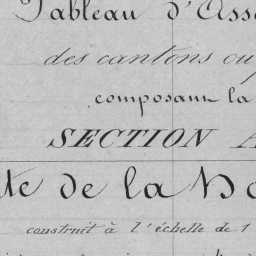 Tableau d'Asse
des cantons ou
composant la
SECTION A
te de la
construit à l'échelle de 1